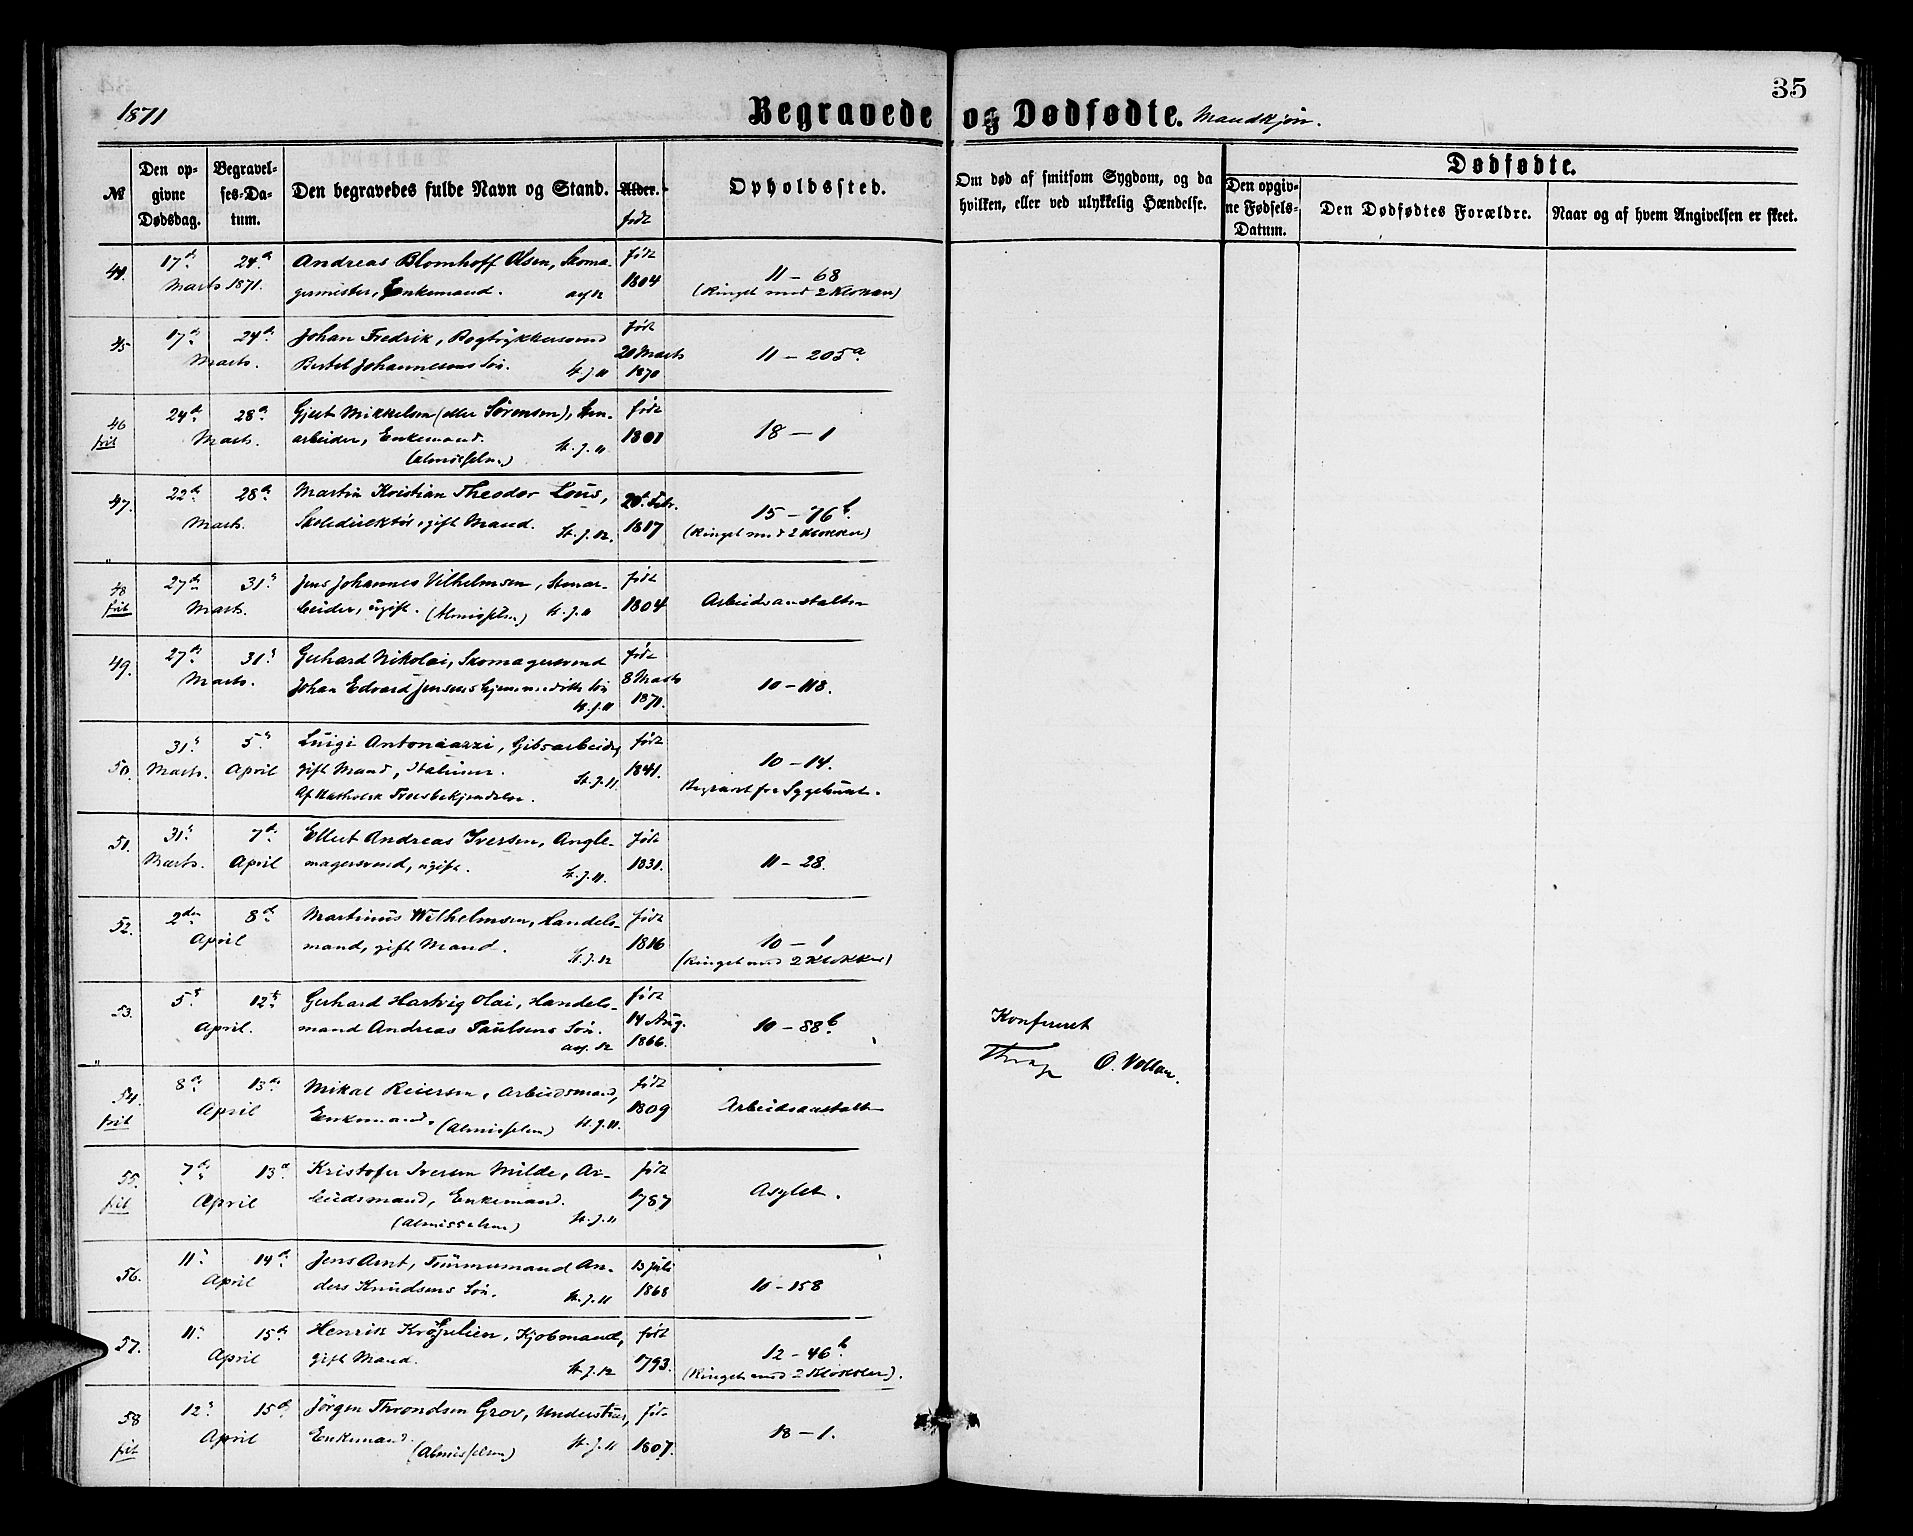 35
1871
Begravede og Dødfødte. Mandkjøn.
№
Den opgivne Dødsdag.
Begravelses-Datum.
Den begravedes fulde Navn og Stand.
Alder. født
Opholdssted.
Om død af smitsom Sygdom, og da
hvilken, eller ved ulykkelig Hændelse.
Dødfødte.
Den opgivne Fødsels-Datum.
Den Dødfødtes Forældre.
Naar og af hvem Angivelsen er skeet.
44. 17de 24de Andreas Blomhoff Olsen, Skoma- født
Marts 1871. germester, Enkemand. 1804 11 – 68
(Ringet med 2 Klokker)
45 17de 24de Johan Fredrik, Bogtrykkersvend født
Marts. Bertel Johannesens Søn. St. J. 11 20 Marts 1870 11 – 205a
46 24de 28de Gjert Mikkelsen (eller Sørensen), født
frit Marts. arbeider, Enkemand. St. J. 11 1801 18 – 1
(Almisselem.)
47. 22de 28de Martin Kristian Theodor Lous, 20de Febr.
Marts. Skoledirektør, gift Mand. St. J. 12. 1817 15 – 76b.
(Ringet med 2 Klokker)
48 27de 31te Jens Johannes Vilhelmsen, Stenar- født
frit Marts. beider, ugift. (Almisselem) St. J. 11 1804 Arbeidsanstalten
49. 27de 31te Gerhard Nikolai, Skomagersvend født
Marts. Johan Edvard Jensens hjemmedøbte Søn 8 Marts 10 – 118.
St. J. 11 1871.
50. 31te 5te Luigi Antoniazzi, Gibsarbeider, født
Marts. April gift Mand, Italiener. St. J. 11 1841. 10 – 14.
Af Katholsk Troesbekjendelse. Begravet fra Sygehuset.
51. 31te 7de Ellert Andreas Iversen, Angle- født
Marts. April magersvend, ugift. St. J. 11. 1831. 11 – 28.
52. 2den 8de Martinus Wilhelmsen, Handels- født
April mand, gift Mand. St. J. 12 1816 10 – 1
(Ringet med 2 Klokker)
53. 5te 12te Gerhard Hartvig Olai, Handels- født
April. mand Andreas Paulsens Søn. 14 Aug. 1866. 10 – 88b
Konfereret
O. Vollan.
54. 8de 13de Mikal Reiersen, Arbeidsmand, født
frit April Enkemand. (Almisselem) St. J. 11. 1809 Arbeidsanstalten
55. 7de 13de Kristofer Iversen Milde, Ar- født
frit April beidsmand, Enkemand. 1787 Asylet.
(Almisselem) St. J. 11
56. 11te 14de Jens Arnt, Tømmermand An- 13 Juli
April ders Knudsens Søn. St. J. 11 1868 10 – 158
57. 11te 15de Henrik Krøepelien, Kjøbmand, født
April gift Mand. St. J. 12 1793. 12 – 46b
(Ringet med 2 Klokker).
58 12te 15de Jørgen Throndsen Grov, født
frit April Enkemand. (Almisselem) St. J. 11 1807. 18 – 1.